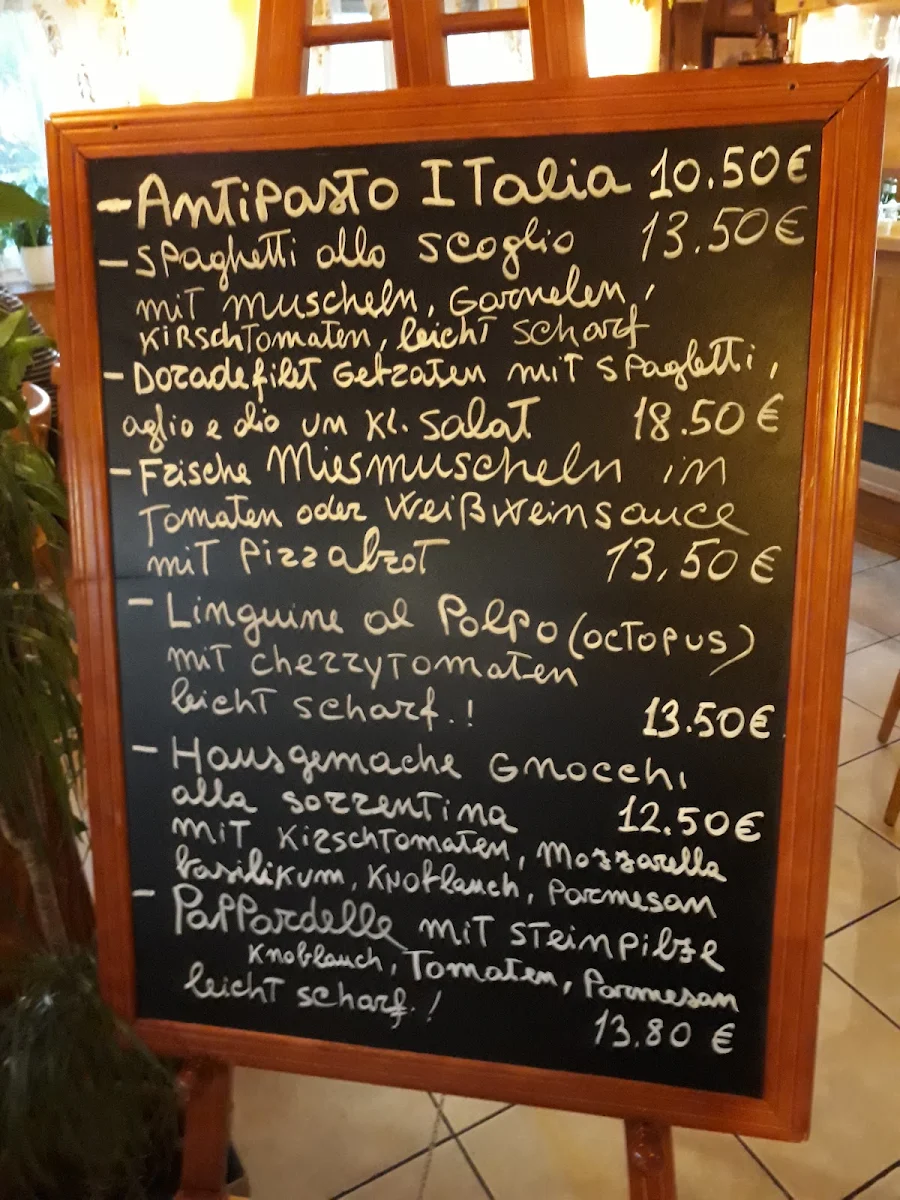 - Antipasto Italia 10.50€
- Spaghetti allo scoglio 13.50€
mit muscheln, Garnelen,
Kirschtomaten, leicht scharf
- Doradefilet Gebraten mit spaghetti,
aglio e olio um kl. Salat 18.50€
- Frische Miesmuscheln in
Tomaten oder Weißweinsauce
mit Pizzabrot 13,50€
- Linguine al Polpo (octopus)
mit cherrytomaten
leicht scharf.! 13.50€
- Hausgemache Gnocchi
alla sorrentina 12.50€
mit Kirschtomaten, Mozzarella
basilikum, Knoblauch, Parmesan
- Pappardelle mit Steinpilze
Knoblauch, Tomaten, Parmesan
leicht scharf.!
13.80€